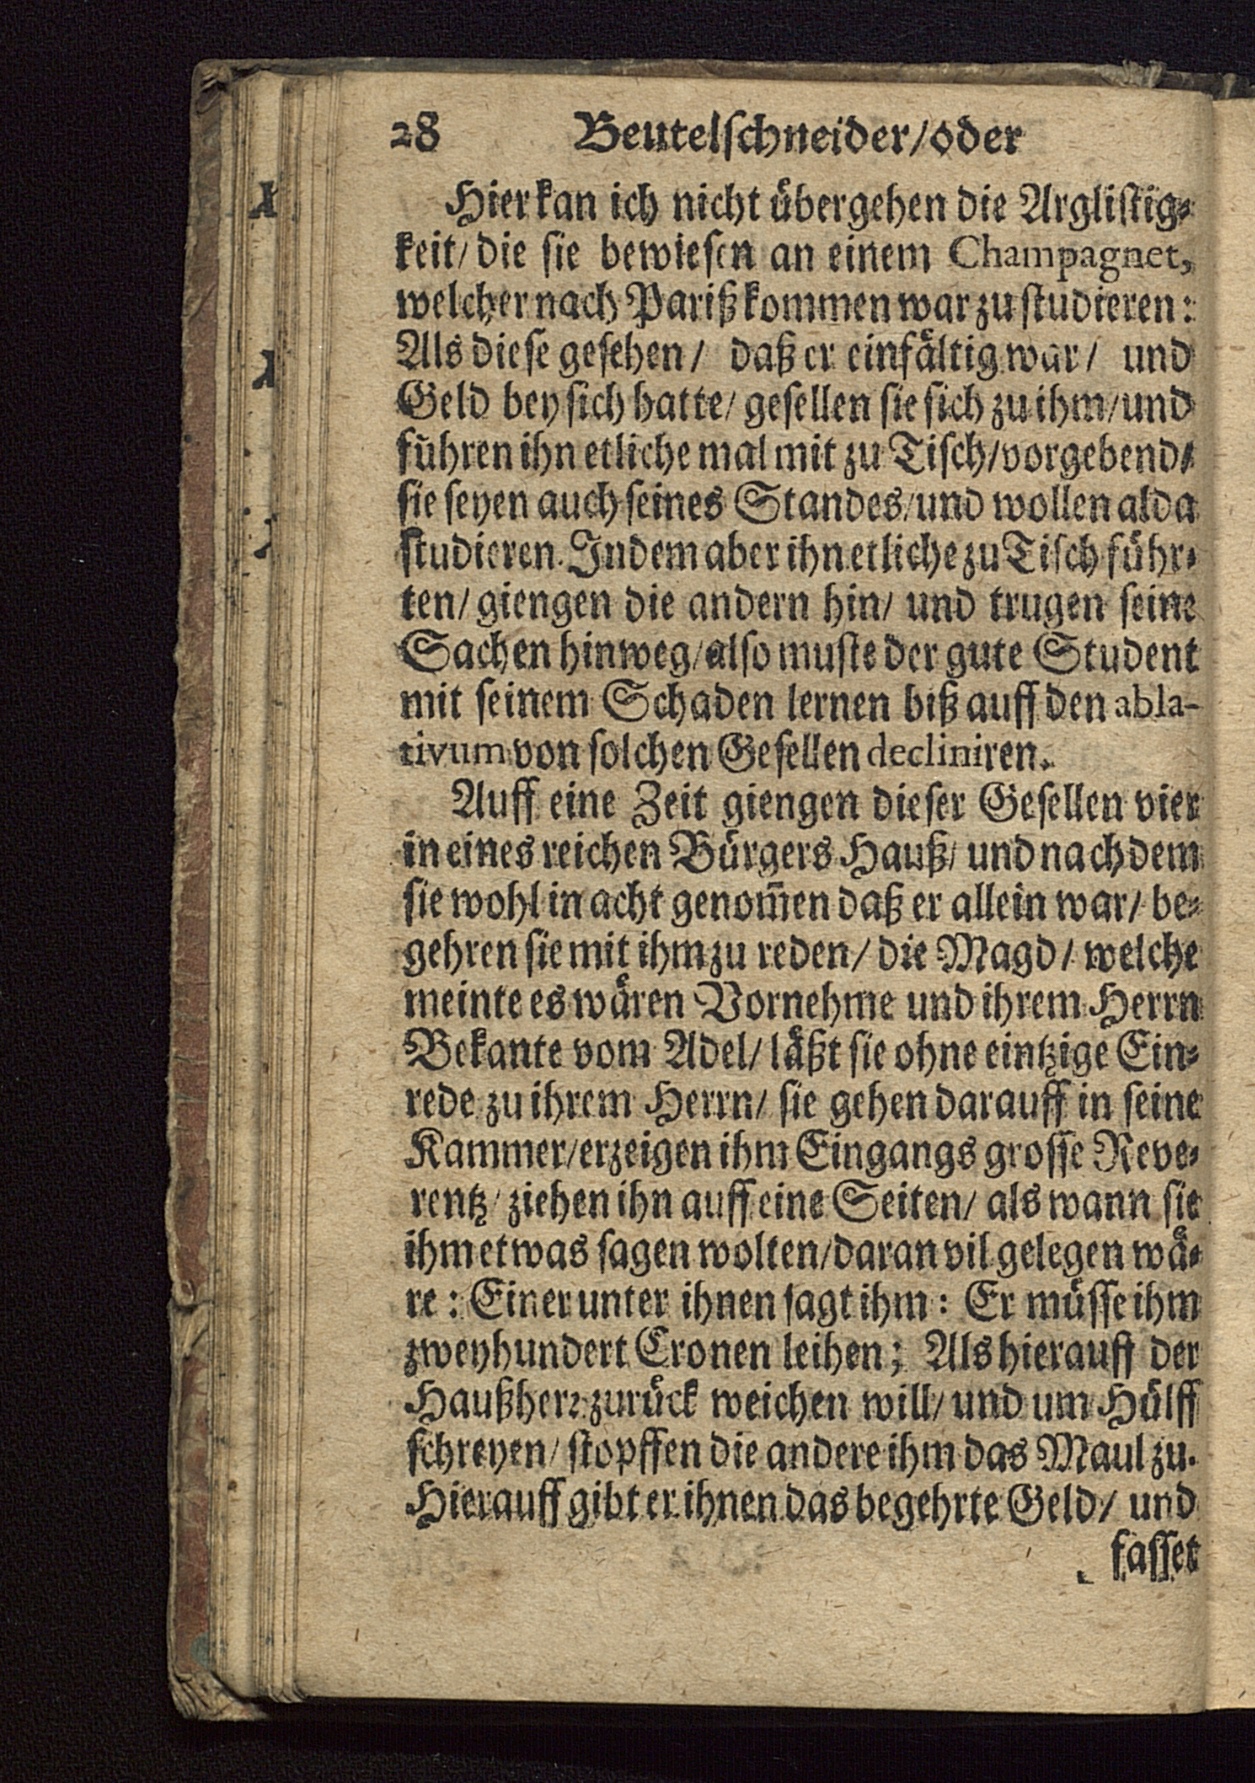 28 Beutelschneider/oder
Hier kan ich nicht übergehen die Arglistig-
keit/ die sie bewiesen an einem Champagnet,
welcher nach Pariß kommen war zu studieren:
Als diese gesehen/ daß er einfältig war/ und
Geld bey sich hatte/ gesellen sie sich zu ihm/ und
führen ihn etliche mal mit zu Tisch/vorgebend/
sie seyen auch seines Standes/ und wollen alda
studieren. Indem aber ihn etliche zu Tisch führ-
ten/ giengen die andern hin/ und trugen seine
Sachen hinweg/also muste der gute Student
mit seinem Schaden lernen biß auff den abla-
tivum von solchen Gesellen decliniren.
Auff eine Zeit giengen dieser Gesellen vier
in eines reichen Bürgers Hauß/ und nachdem
sie wohl in acht genom̄en daß er allein war/ be-
gehren sie mit ihm zu reden/ die Magd/ welche
meinte es wären Vornehme und ihrem Herrn
Bekante vom Adel/ läßt sie ohne eintzige Ein-
rede zu ihrem Herrn/ sie gehen darauff in seine
Kammer/erzeigen ihm Eingangs grosse Reve-
rentz/ ziehen ihn auff eine Seiten/ als wann sie
ihm etwas sagen wolten/daran vil gelegen wä-
re: Einer unter ihnen sagt ihm: Er müsse ihm
zweyhundert Cronen leihen; Als hierauff der
Haußherr zurück weichen will/ und um Hülff
schreyen/ stopffen die andere ihm das Maul zu.
Hierauff gibt er ihnen das begehrte Geld/ und
fasset